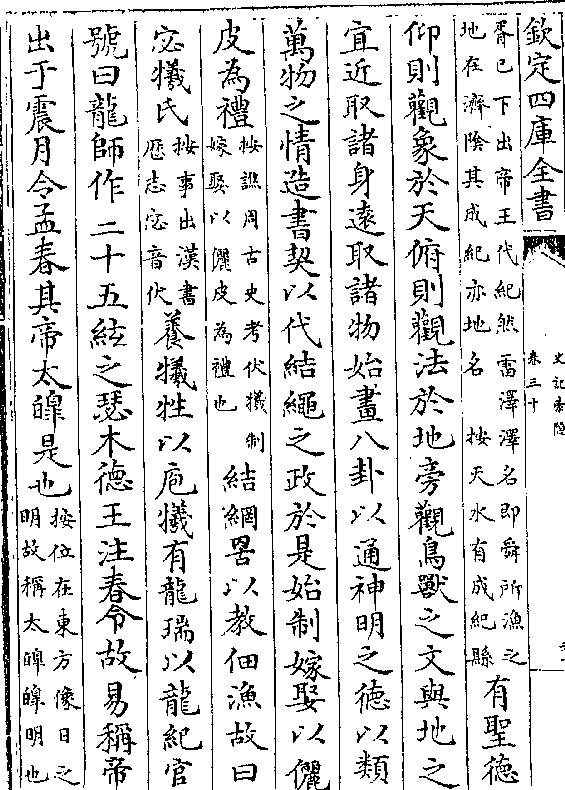 欽定四庫全書
史記索隱
卷三十
胥已下出帝王代紀然雷澤澤名即舜所漁之
地在濟陰其成紀亦地名 按天水有成紀縣
有聖德
仰則觀象於天俯則觀法於地旁觀鳥獸之文與地之
宜近取諸身遠取諸物始畫八卦以通神明之德以類
萬物之情造書契以代結繩之政於是始制嫁娶以儷
皮為禮
按譙周古史考伏犧制
嫁娶以儷皮為禮也
結網罟以教佃漁故曰
宓犧氏
按事出漢書
歷志宓音伏
養犧牲以庖犧有龍瑞以龍紀官
號曰龍師作二十五絃之瑟木德王注春令故易稱帝
出于震月令孟春其帝太皥是也
按位在東方像日之
明故稱太皥皥明也